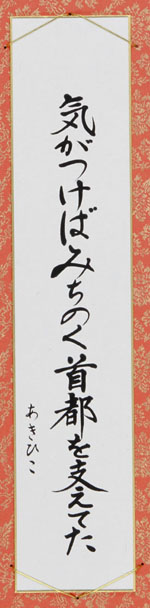 気がつけばみちのく首都を支えてた
あきひこ